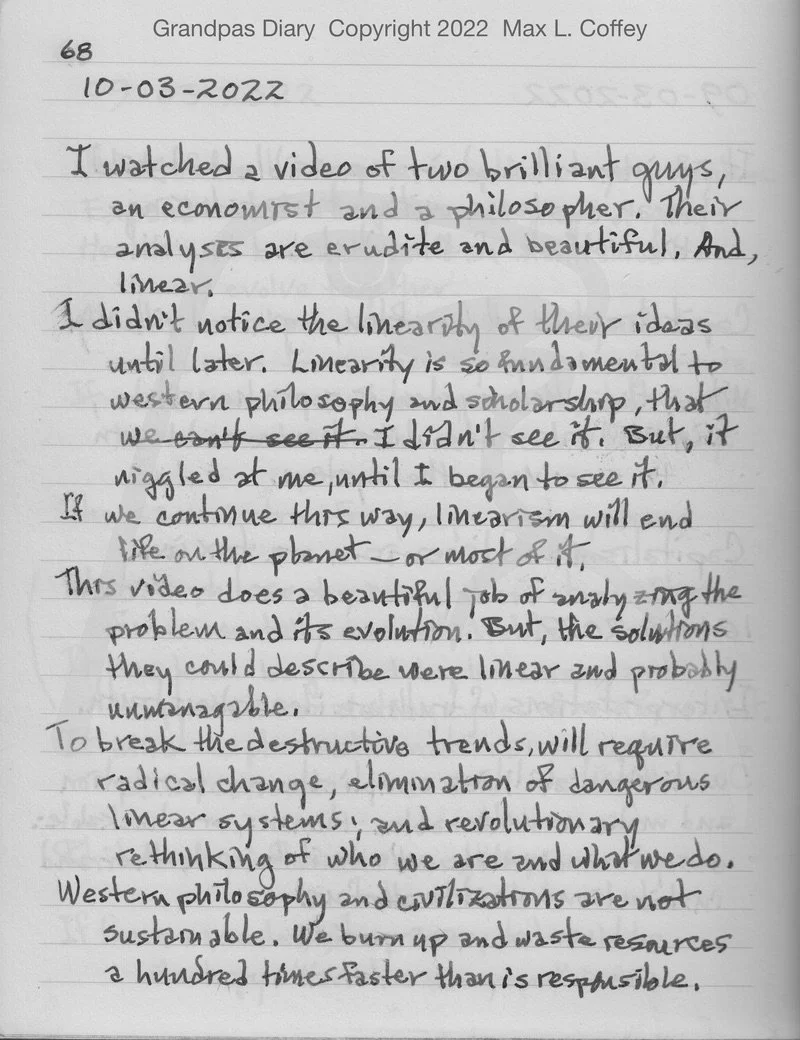 Grandpas Diary Copyright 2022 Max L. Coffey
68
10-03-2022
I watched a video of two brilliant guys,
an economist and a philosopher. Their
analyses are erudite and beautiful. And,
linear.
I didn't notice the linearity of their ideas
until later. Linearity is so fundamental to
western philosophy and scholarship, that
we can't see it. I didn't see it. But, it
niggled at me, until I began to see it.
If we continue this way, linearism will end
life on the planet — or most of it.
This video does a beautiful job of analyzing the
problem and its evolution. But, the solutions
they could describe were linear and probably
unmanagable.
To break the destructive trends, will require
radical change, elimination of dangerous
linear systems; and revolutionary
rethinking of who we are and what we do.
Western philosophy and civilizations are not
sustainable. We burn up and waste resources
a hundred times faster than is responsible.